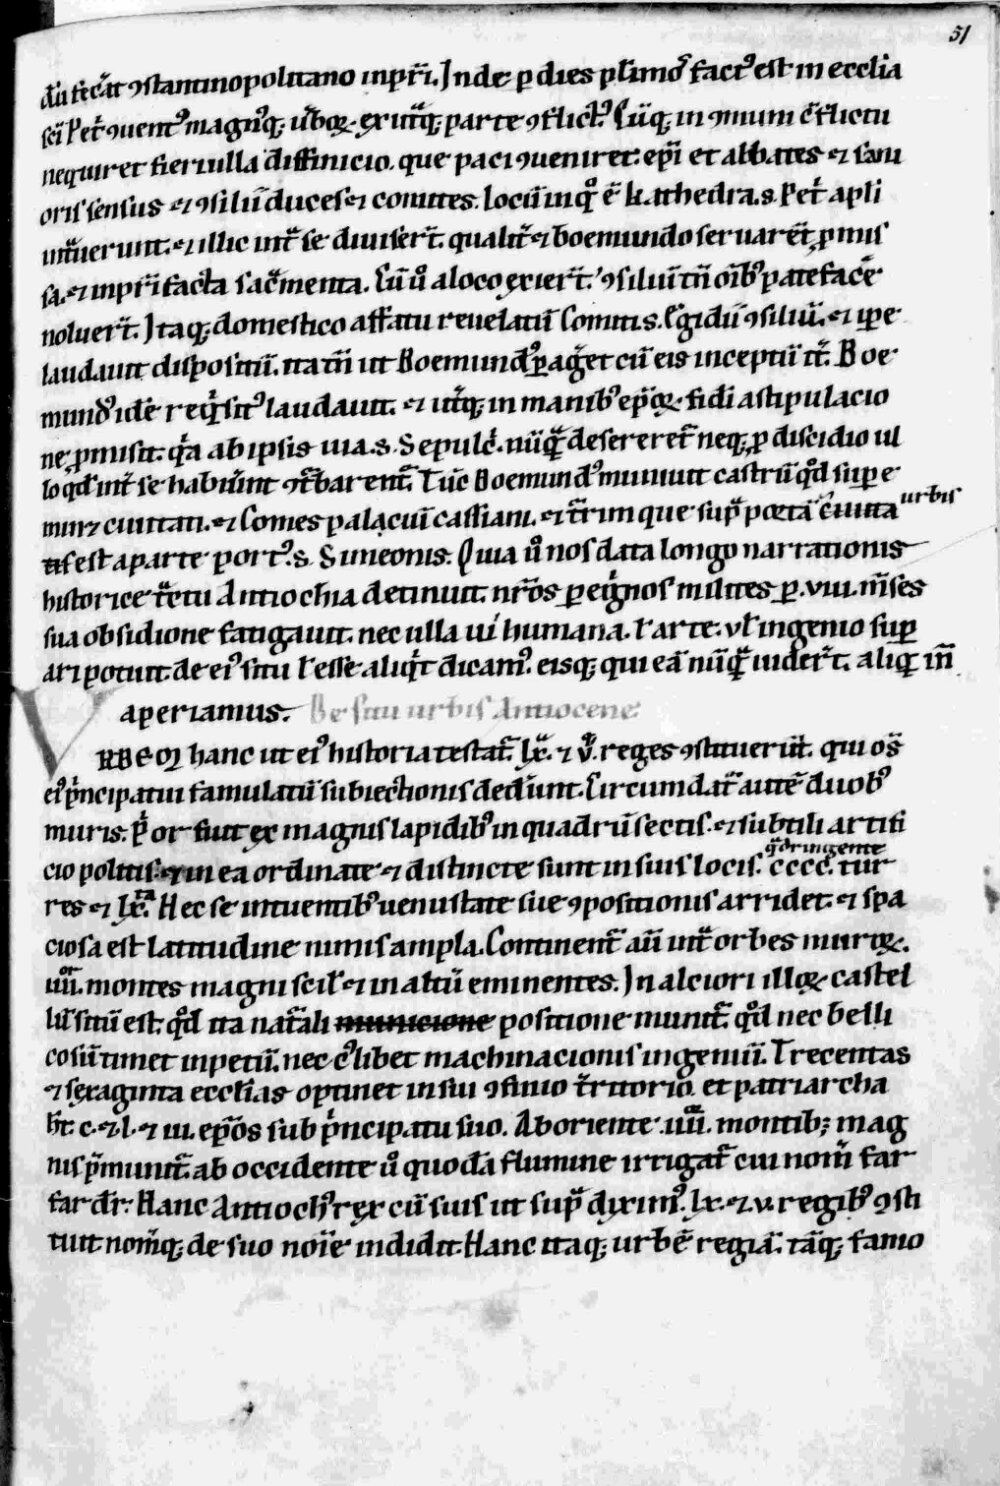 51
dū fec̄at ꝯstantinopolitano inp̄ri. Inde p dies pl̄imoˀ factˀ est in ecclīa
sc̄i Petˈ ꝯuentˀ magnˀq; uˈbꝝ. ex utˈq; parte ꝯflictˀ. Cūq; in ꝯmum cōflictu
nequiret fieri ulla diffinicio. que paci ꝯueniret: ep̄i et abbates ⁊ sani
oris sensus ⁊ ꝯsilii duces ⁊ comites. locū inq̊ ē kathedra .s. Petˈ apl̄i
intˈuerunt. ⁊ illic intˈ se diuiserˈt. qualitˈ ⁊ boemundo seruarēt ꝑmis
sa. ⁊ inp̄ri facta sacˈmenta. Cū ů a loco exierˈt. ꝯsiliū tn̄ oībˀ patefacˈe
noluerˈt. Itaq; domestico affatu reuelatū Comiti .s. Egidii ꝯsiliū. ⁊ ip̄e
laudauit dispositū. ita tn̄ ut Boemundˀ ꝑag̊et cū eis inceptū itˈ. Boe
mundˀ idē reqˈsitˀ laudauit. ⁊ utˈq; in manibˀ ep̄oꝝ. fidei astipulacio
ne ꝑmisit. qˈa ab ipsis uia .s. Sepulcˈ. nūqˈ desereretˈ neq; ꝓ discidio ul
lo qd̄ intˈ se habuˈint ꝯtˈbarentˈ. Tūc Boemundˀ muniuit castrū qd̄ supe
murꝫ ciuitati. ⁊ Comes palaciū cassiani. ⁊ tˈrim que supˈ portā ē ciuita urbis
tis est a parte portˀ .s. Simeonis. Quia ů nos data longo narrationis
historice tˈctu Antiochia detinuit. nr̄os ꝑ eqˈgnos milites ꝑ .viii. m̄ses
sua obsidione fatigauit. nec ulla ui humana. l̄ arte. vl̄ ingenio suꝑ
ari potuit. de eiˀ situ l̄ esse aliqˈt dicamˀ. eisq; qui eā nūqˈ uiderˈt. aliqˈ in̄
aperiamus. De situ urbis Antiocene.
VRBEM hanc ut eiˀ historia testatˈ lx̄. ⁊ v̄. reges ꝯstituerūt. qui oˈs
eiˀ pˈncipatui famulatū subiectionis dedˈunt. Circumdatˈ autē duobˀ
muris. pˈor fuit ex magnis lapidibˀ in quadrū sectis. ⁊ subtili artifi
cio politis. ⁊ in ea ordinate ⁊ distincte sunt in suis locis. q̊dringente cccc. tur
res ⁊ lx̄.ta Hec se intuentibˀ uenustate sue ꝯpositionis arridet. ⁊ spa
ciosa est latitudine nimis ampla. Continentˈ aū intˈ orbes muroꝝ.
iiii.or montes magni scil̄ ⁊ in altū eminentes. In alciori illoꝝ castel
lū sitū est. qd̄ ita natˈali municione positione munitˈ. qd̄ nec belli
cosū timet inpetū. nec cˀlibet machinacionis ingeniū. Trecentas
⁊ sexaginta ecclīas optinet in sui ꝯfinio tˈritorio. et patriarcha
h̄t. c. ⁊ .l. ⁊ iii. ep̄os sub pˈncipatu suo. Ab oriente .iiii. montib; mag
nis pˈmunitˈ. ab occidente ů quodā flumine irrigatˈ cui nom̄ far
far dr̄. Hanc Antiochˀ rex cū suis ut supˈ diximˀ. lx. ⁊ v. regibˀ ꝯsti
tuit nom̄q; de suo noīe indidit. Hanc itaq; urbē regiā. tāq; famo